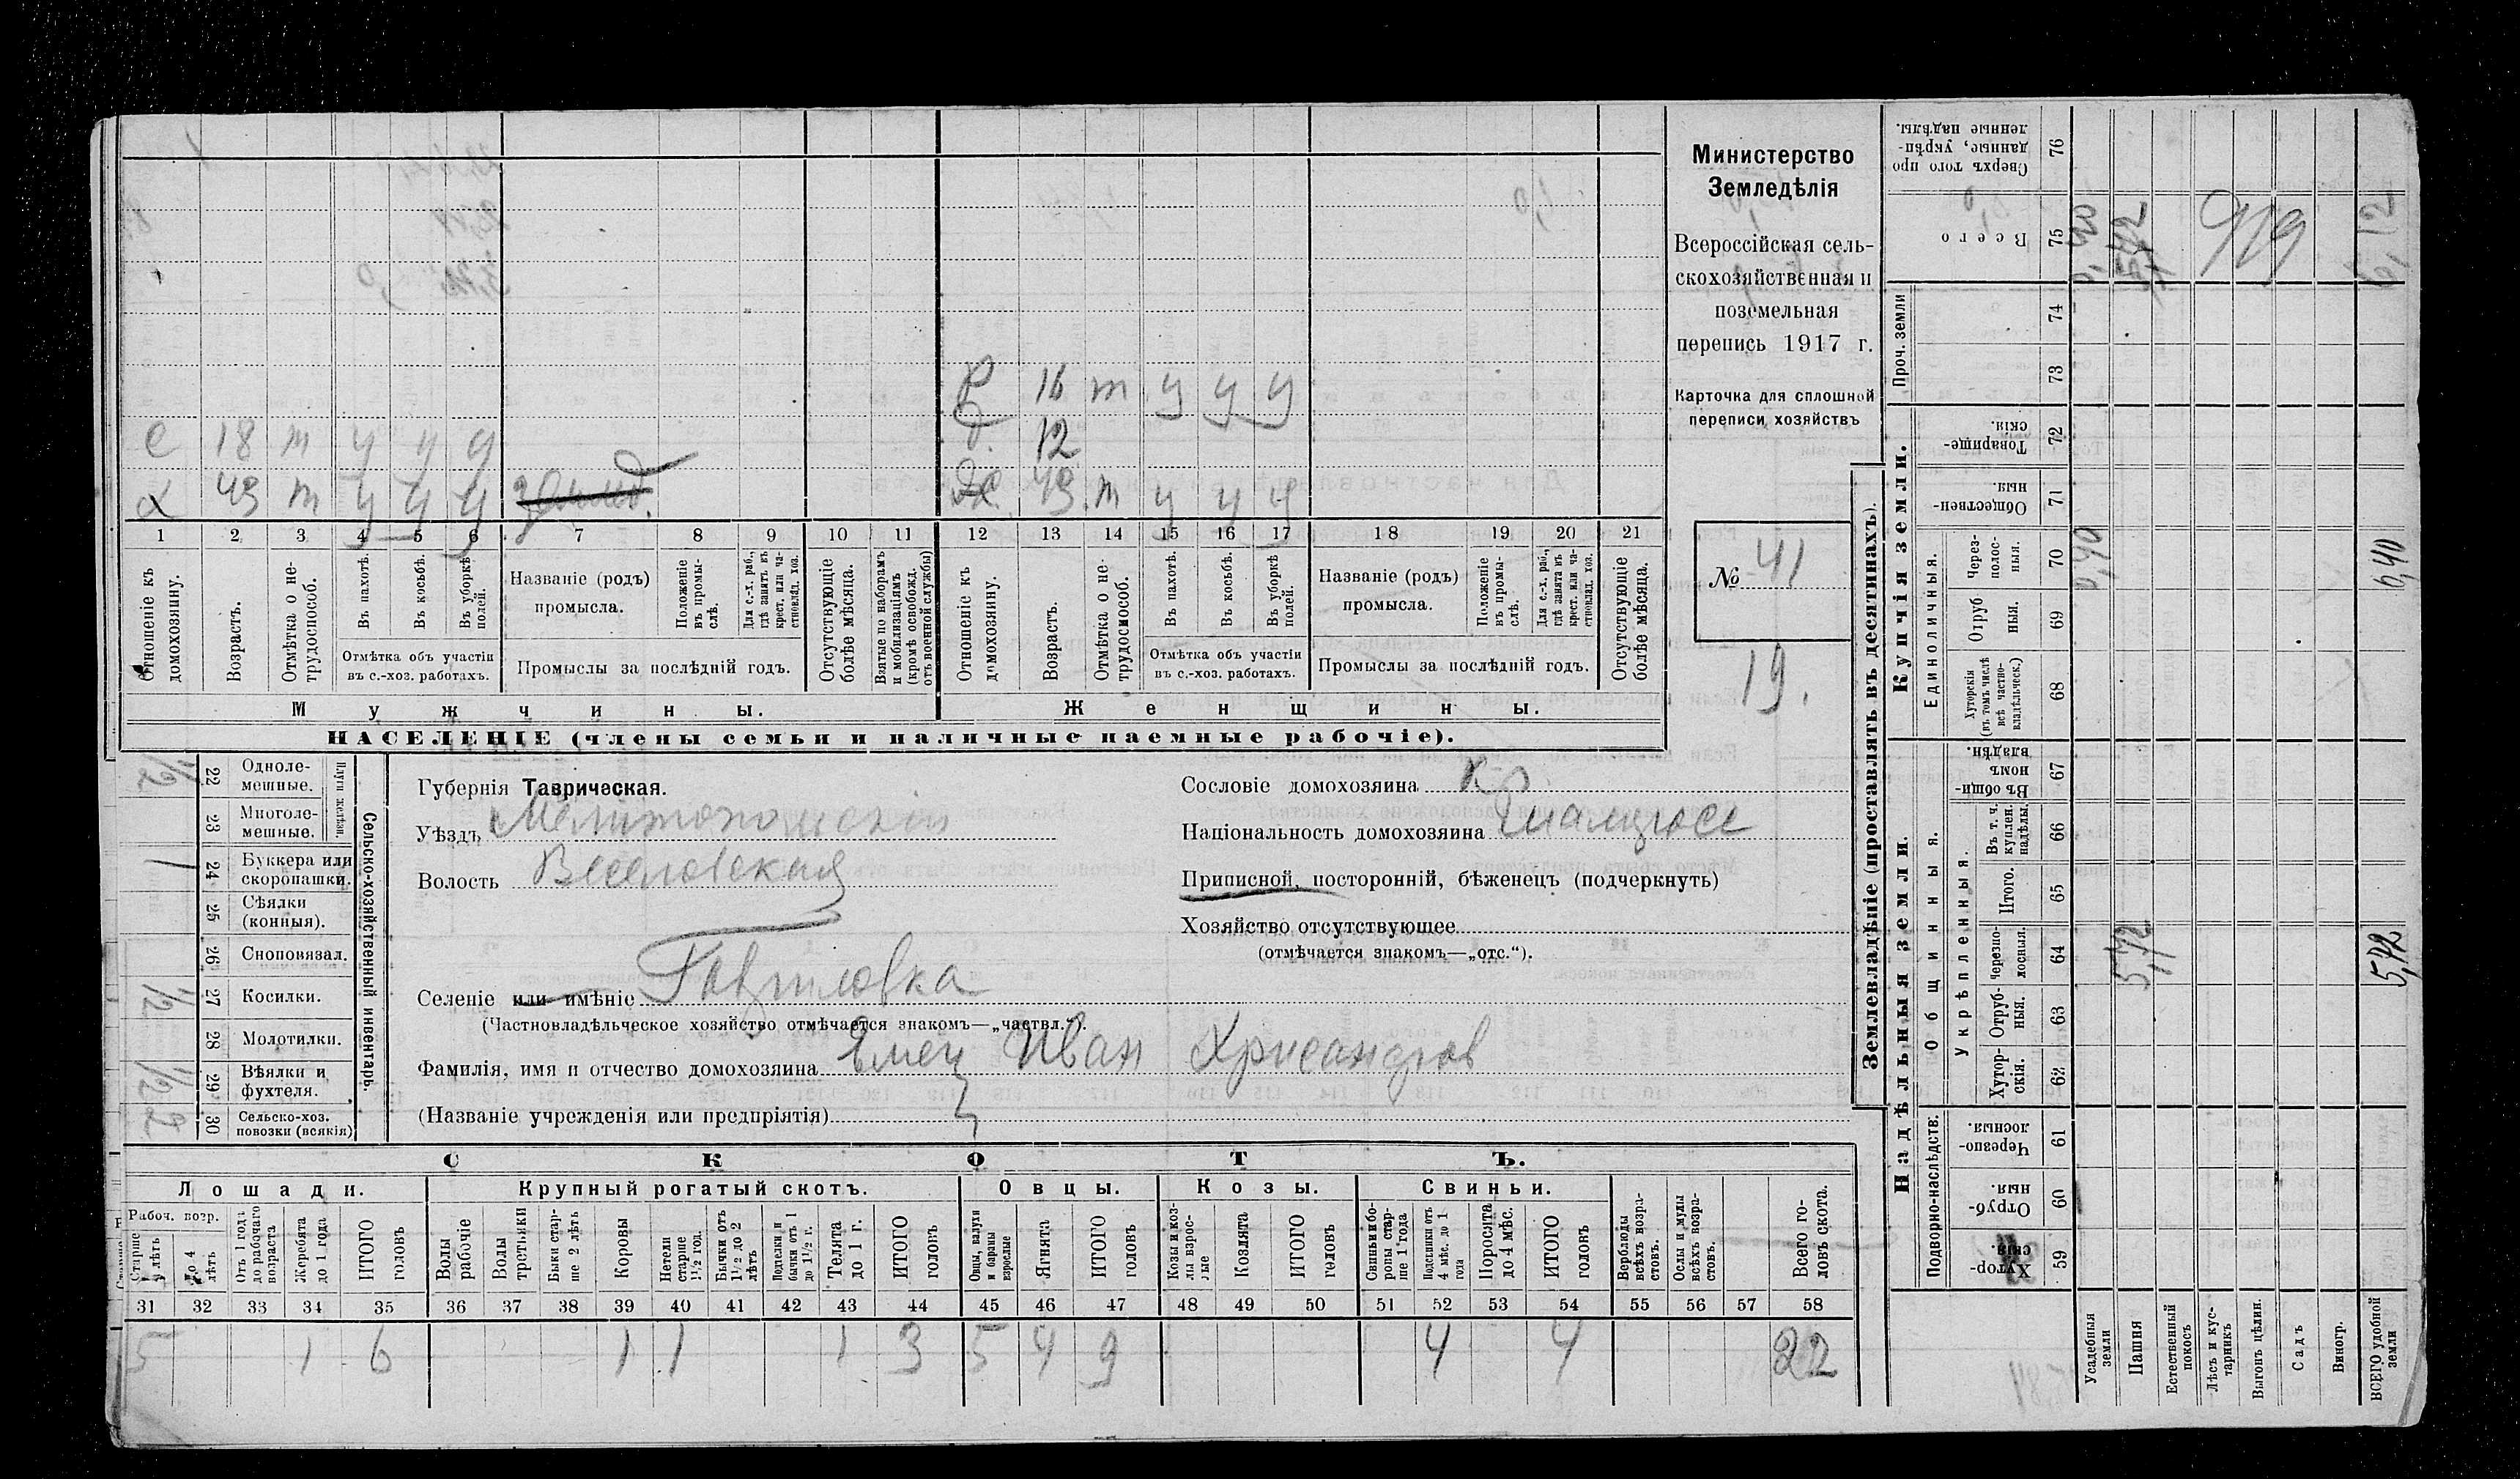 Министерство
Земледѣлія
Всероссійская сель-
скохозяйственная и
поземельная
перепись 1917 г.
Карточка для сплошной
переписи хозяйствъ
№ 41
19.
р 16 т у у у
е 18 т у у у
д. 12
х 43 т у у у
ж 43 т у у у
1 2 3 4 5 6 7 8 9 10 11 12 13 14 15 16 17 18 19 20 21
Отношеніе къ домохозяину.
Возрастъ.
Отмѣтка о не-трудоспособ.
Въ пахотѣ.
Въ косьбѣ.
Въ уборкѣ полей.
Отмѣтка объ участіи
въ с.-хоз. работахъ.
Названіе (родъ)
промысла.
Положеніе въ промы-слѣ.
Для с.-х. раб., гдѣ занятъ въ крест. или ча-стновлад. хоз.
Промыслы за послѣдній годъ.
Отсутствующіе болѣе мѣсяца.
Взятые по наборамъ и мобилизаціямъ (кромѣ освобожд. отъ военной службы)
Отношеніе къ домохозяину.
Возрастъ.
Отмѣтка о не-трудоспособ.
Въ пахотѣ.
Въ косьбѣ.
Въ уборкѣ полей.
Отмѣтка объ участіи
въ с.-хоз. работахъ.
Названіе (родъ)
промысла.
Положеніе въ промы-слѣ.
Для с.-х. раб., гдѣ занята въ крест. или ча-стновлад. хоз.
Промыслы за послѣдній годъ.
Отсутствующіе болѣе мѣсяца.
Мужчины.
Женщины.
НАСЕЛЕНІЕ (члены семьи и наличные наемные рабочіе).
Сельско-хозяйственный инвентарь.
Плуги желѣзн.
22 Одноле-мешные. 1/2
23 Многоле-мешные.
24 Буккера или скоропашки. 1
25 Сѣялки (конныя).
26 Сноповязал.
27 Косилки. 1/2
28 Молотилки.
29 Вѣялки и фухтеля. 1/2
30 Сельско-хоз. повозки (всякія) 2
Губернія Таврическая.
Уѣздъ Мелитопольскій
Волость Веселовская
Селеніе или имѣніе Гавриловка
(Частновладѣльческое хозяйство отмѣчается знакомъ—„частвл.“).
Фамилія, имя и отчество домохозяина Емец Иван Хрисандров
(Названіе учрежденія или предпріятія)
Сословіе домохозяина кр.
Національность домохозяина
Приписной, посторонній, бѣженецъ (подчеркнуть)
Хозяйство отсутствующее
(отмѣчается знакомъ—„отс.“).
СКОТЪ.
Лошади.
Крупный рогатый скотъ.
Овцы.
Козы.
Свиньи.
Рабоч. возр.
Старше 4 лѣтъ
До 4 лѣтъ
Отъ 1 года до рабочаго возраста
Жеребята до 1 года
ИТОГО головъ
Волы рабочіе
Волы третьяки
Быки стар-ше 2 лѣтъ
Коровы
Нетели старше 1 1/2 год.
Бычки отъ 1 1/2 до 2 лѣтъ
Подтелки и бычки отъ 1 до 1 1/2 г.
Телята до 1 г.
ИТОГО головъ
Овцы, валухи и бараны взрослые
Ягнята
ИТОГО головъ
Козы и коз-лы взрос-лые
Козлята
ИТОГО головъ
Свиньи и бо-ровы стар-ше 1 года
Подсвинки отъ 4 мѣс. до 1 года
Поросята до 4 мѣс.
ИТОГО головъ
Верблюды всѣхъ возра-стовъ.
Ослы и мулы всѣхъ возра-стовъ.
Всего го-ловъ скота.
31 32 33 34 35 36 37 38 39 40 41 42 43 44 45 46 47 48 49 50 51 52 53 54 55 56 57 58
5 1 6 1 1 1 3 5 4 9 4 4 22
Землевладѣніе (проставлять въ десятинахъ).
Надѣльныя земли.
Купчія земли.
Проч. земли
Подворно-наслѣдств:
Общинныя.
Укрѣпленныя.
Единоличныя.
76 Сверхъ того про-данные, укрѣп-ленные надѣлы.
75 Всего 5,72 6,12
74
73
72 Товарище-скія.
71 Обществен-ныя.
70 Через-полос-ныя. 0,40 0,40
69 Отруб-ныя.
68 Хуторскія (въ томъ числѣ всѣ частно-владѣльческ.)
67 Въ общин-номъ владѣн.
66 Въ т. ч. куплен. надѣлы.
65 Итого.
64 Черезпо-лосныя. 5,72 5,72
63 Отруб-ныя.
62 Хутор-скія.
61 Черезпо-лосныя.
60 Отруб-ныя.
59 Хутор-скія.
Усадебныя земли
Пашня
Естественный покосъ
Лѣсъ и кус-тарникъ
Выгонъ цѣлин.
Садъ
Виногр.
ВСЕГО удобной земли